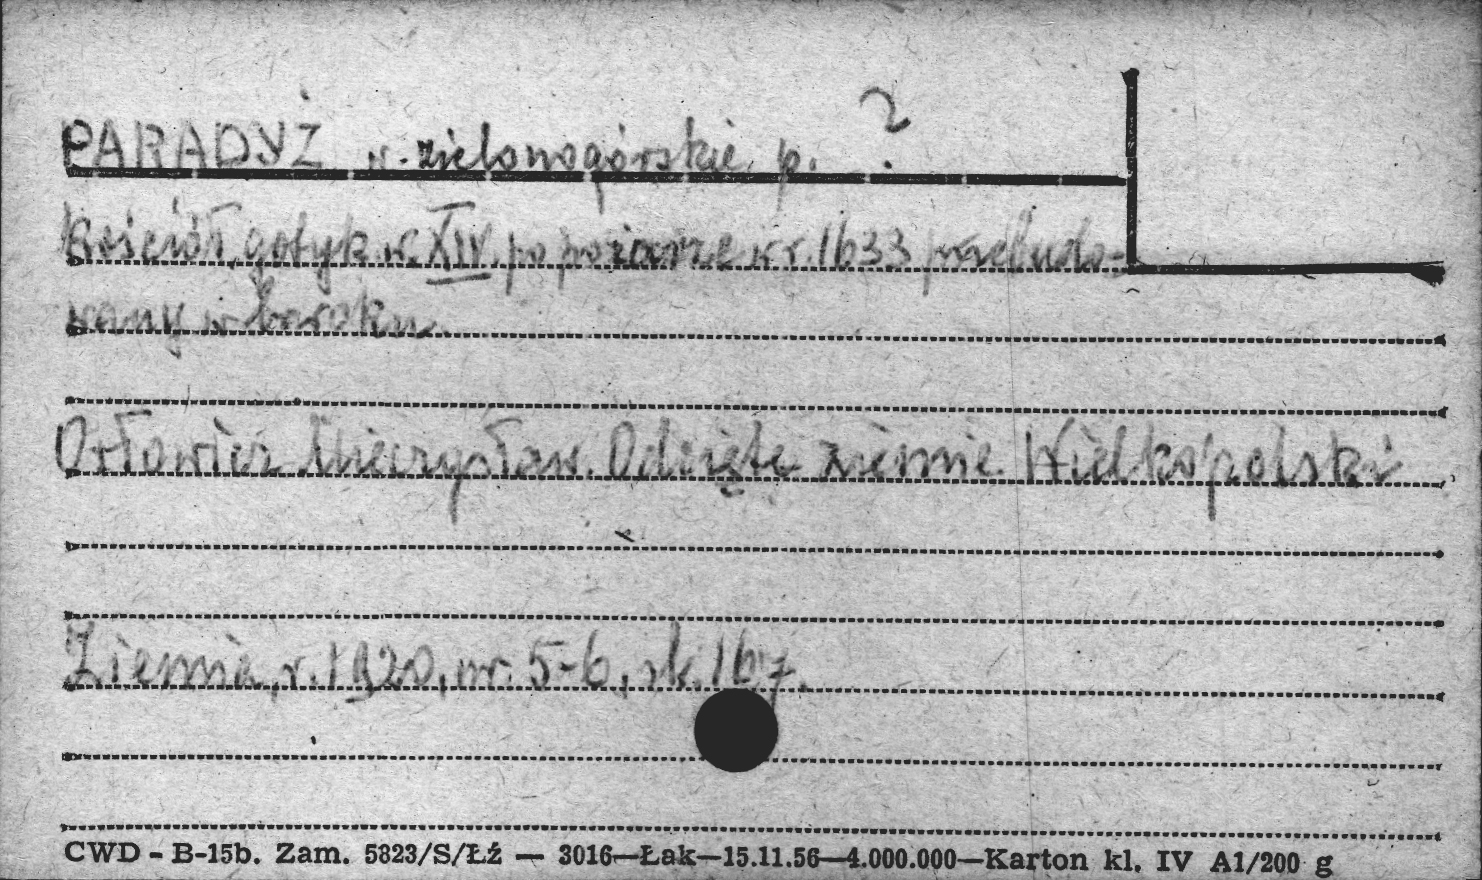 PARADYŻ w. zielonogórskie p. ?
Kościół gotyk. w. XIV. po pożarze w r. 1633 przebudo-
wany w baroku.
Orłowicz Mieczysław. Odcięte ziemie Wielkopolski
Ziemia, r. 1920, nr. 5-6, sk. 167.
CWD - B-15b. Zam. 5823/S/Łź — 3016—Łak—15.11.56—4.000.000—Karton kl. IV A1/200 g